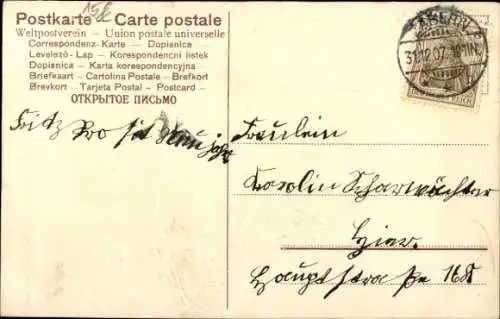 Postkarte - Carte postale
Weltpostverein - Union postale universelle
Correspondenz-Karte - Dopisnice
Levelező-Lap - Korespondencni listek
Dopisnica - Karta korespondencyjna
Briefkaart - Cartolina Postale - Brefkort
Brevkort - Tarjeta Postal - Postcard -
ОТКРЫТОЕ ПИСЬМО
31.12.07
Fritz Prosit Neujahr
Fräulein
Karolin Scharwächter
Hier.
Hauptstraße 168